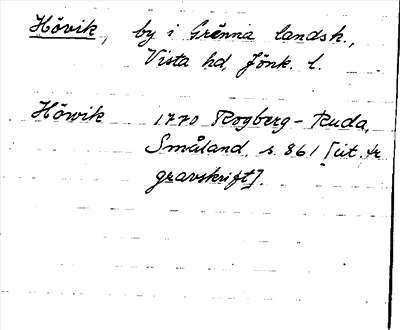 Hövik, by i Grenna landsk.,
Vista hd, Jönk. l.
Höwik 1770 Rogberg-Ruda,
Småland, s. 861 [cit. fr
gravskrift].